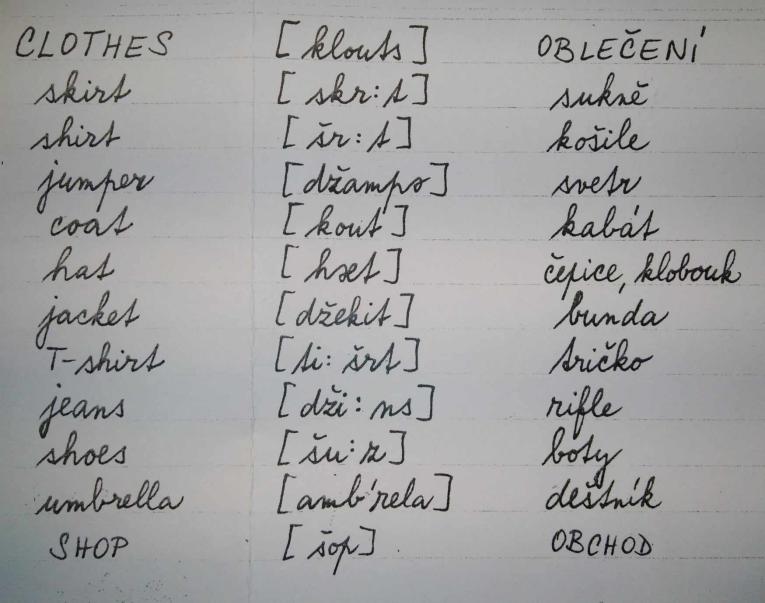 CLOTHES [klouts] OBLEČENÍ
skirt [skr:t] sukně
shirt [šr:t] košile
jumper [džampə] svetr
coat [kout] kabát
hat [hæt] čepice, klobouk
jacket [džekit] bunda
T-shirt [ti: šrt] tričko
jeans [dži:ns] rifle
shoes [šu:z] boty
umbrella [amb'rela] deštník
SHOP [šop] OBCHOD